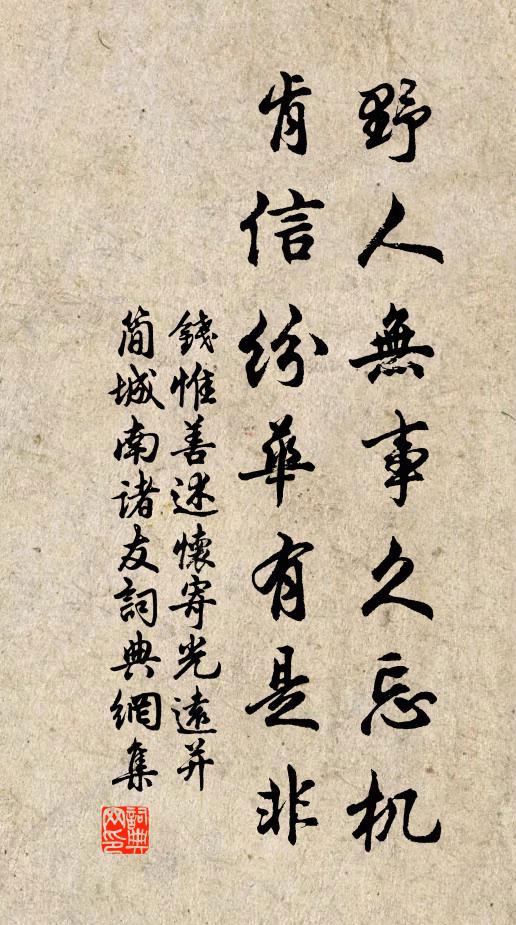 野人無事久忘机
肯信紛華有是非
錢惟善述懷寄光遠并
簡城南诸友詞典網集
詞典
网印